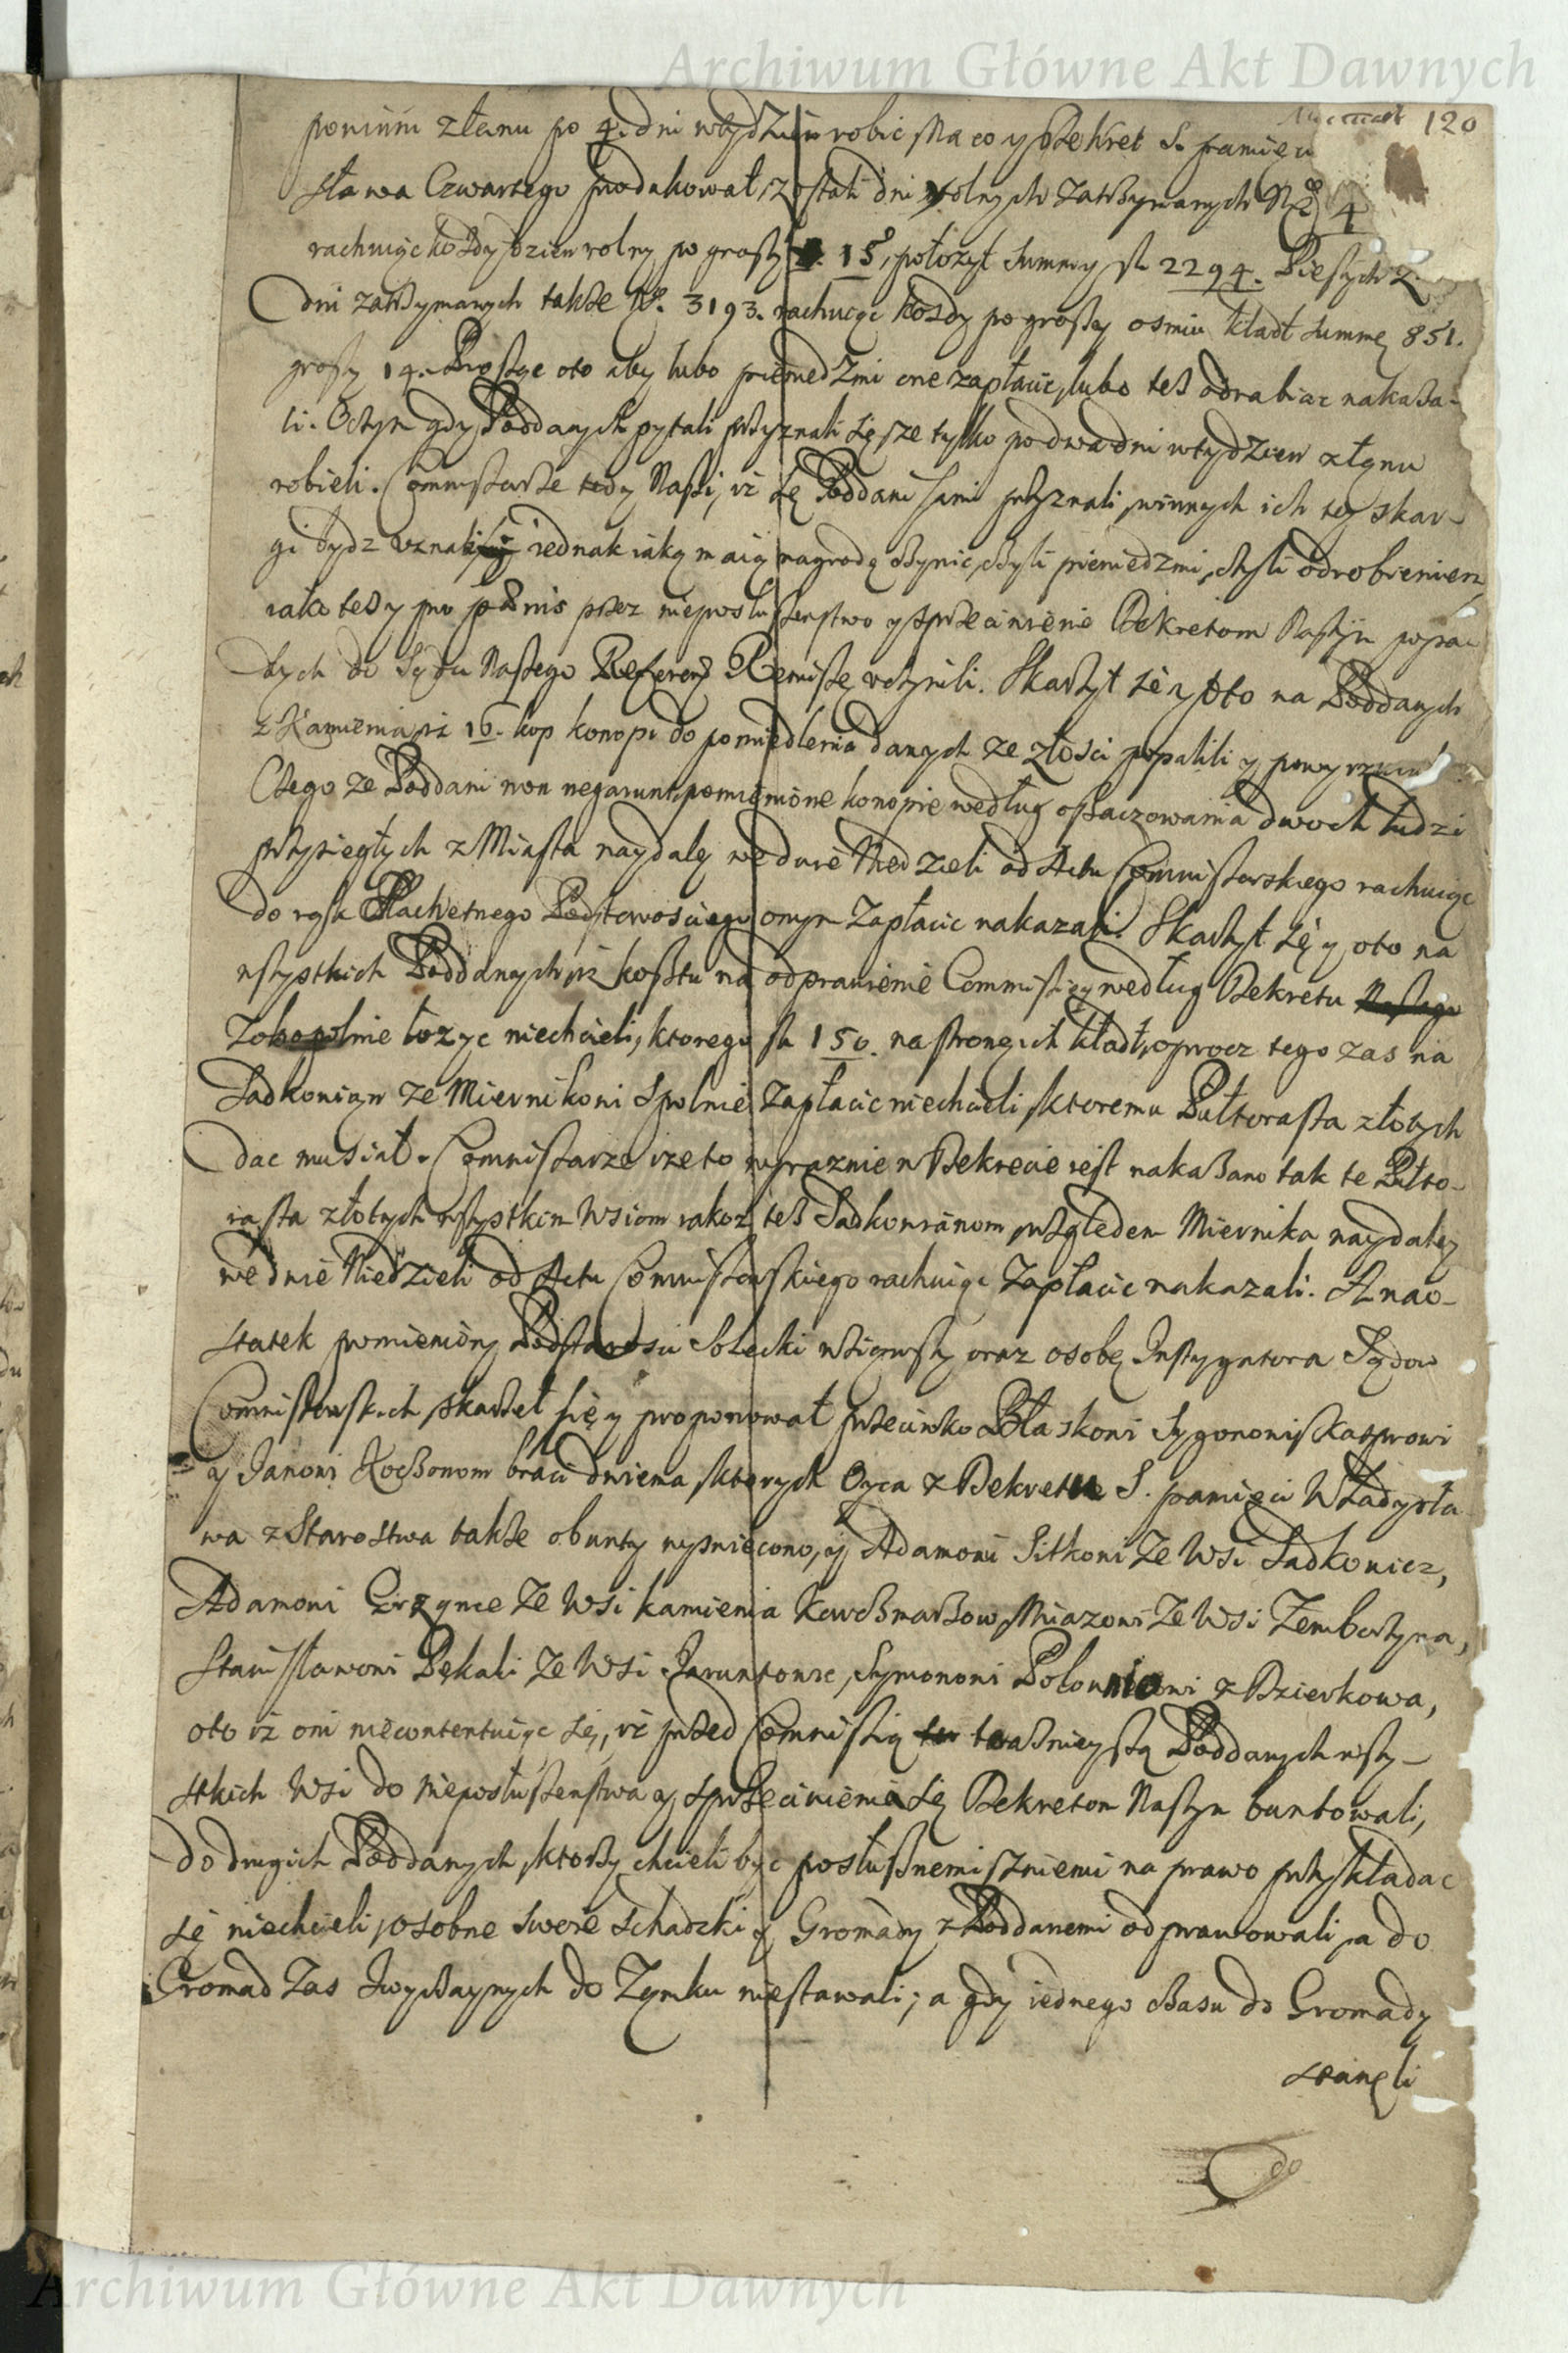 Archiwum Główne Akt Dawnych
120
powinni złanu po 4. dni wtydzien robic, Na co y Dekret S. pamięci
sława Czwartego produkował, zostali dni rolnych zatrzymanych No 4
rachuiąc kożdy dzien rolny po groszy 15, położył Summy fl 2294. Pieszych z
dni zatrzymanych także No. 3193. rachuiąc kożdy po groszy osmiu kładł Summę 851.
groszy 14. Prosząc oto aby lubo pieniedzmi one zapłacic, lubo tesz odrabiac nakaza-
li. Octym gdy Poddanych pytali przyznali się, ze tylko po dwa dni wtydzien złanu
robieli. Commissarze tedy Naszi, iż się Poddani sami przyznali, winnych ich tey skar-
gi bydz uznali, iednak iaką maią nagrodę czynic, czyli pieniedzmi, czyli odrobieniem,
iako tesz y pro pænis przez nieposłuszenstwo y sprzeciwienie Dekretom Naszym popa
dłych do Sądu Naszego Referend Remissę uczynili. Skarzył się y oto na Poddanych
z Kamienia, iż 16. kop konopi do pomiędlenia danych ze złosci popalili y powyrzucali
Czego ze Poddani non negarunt, pomienione konopie według oszaczowania dwoch ludzi
przysięgłych z Miasta naydaley we dwie Niedzieli od Actu Commissarskiego rachuiąc
do rąk Szlachetnego Podstarosciego onym zapłacic nakazali. Skarzył się y oto na
wszystkich Poddanych, iż kosztu na odprawienie Commissiey według Dekretu Naszego
Zobopolnie łozyc niechcieli, ktorego fl 150. na stronę ich kładł, oprocz tego zas na
Sadkowian ze Miernikowi Spolnie zapłacic niechcieli, ktoremu Pułtorasta złotych
dac musiał. Commissarze ize to wyraznie w Dekrecie iest nakazano tak te Pułto-
rasta złotych wszystkim Wsiom iakoz tesz Sadkowianom względem Miernika naydaley
we dwie Niedzieli od Actu Commissarskiego rachuiąc zapłacic nakazali. A nao-
statek pomieniony Podstarosci Solecki wziąwszy oraz osobę Instygatora Sądow
Commissarskich skarzeł się y proponował przeciwko Błaskowi Sygonowi, Kasprowi
y Janowi Koczonom braci dwiema, ktorych Oyca z Dekretu S. pamięci Władysła
wa z Starostwa także o bunty wyswiecono, y Adamowi Sitkowi ze Wsi Sadkowicz,
Adamowi Grzywce ze Wsi kamienia Karczmarzow, Miazowi ze Wsi Zemborzyna,
Stanisławowi Pękali ze Wsi Jaruntowic, Symonowi Połowniowi z Dzierkowa,
oto iż oni niecontentuiąc się, iż przed Commissią teraznieyszą Poddanych wszy-
stkich Wsi do nieposłuszenstwa y sprzeciwienia się Dekretom Naszym buntowali,
do drugich Poddanych, ktorzy chcieli byc posłusznemi, zniemi na prawo przykładac
się niechcieli, osobne swoie schadzki y Gromady z Poddanemi odprawowali, a do
Gromad zas zwyczaynych do Zamku niestawali; a gdy iednego czasu do Gromady
staneli
Archiwum Główne Akt Dawnych